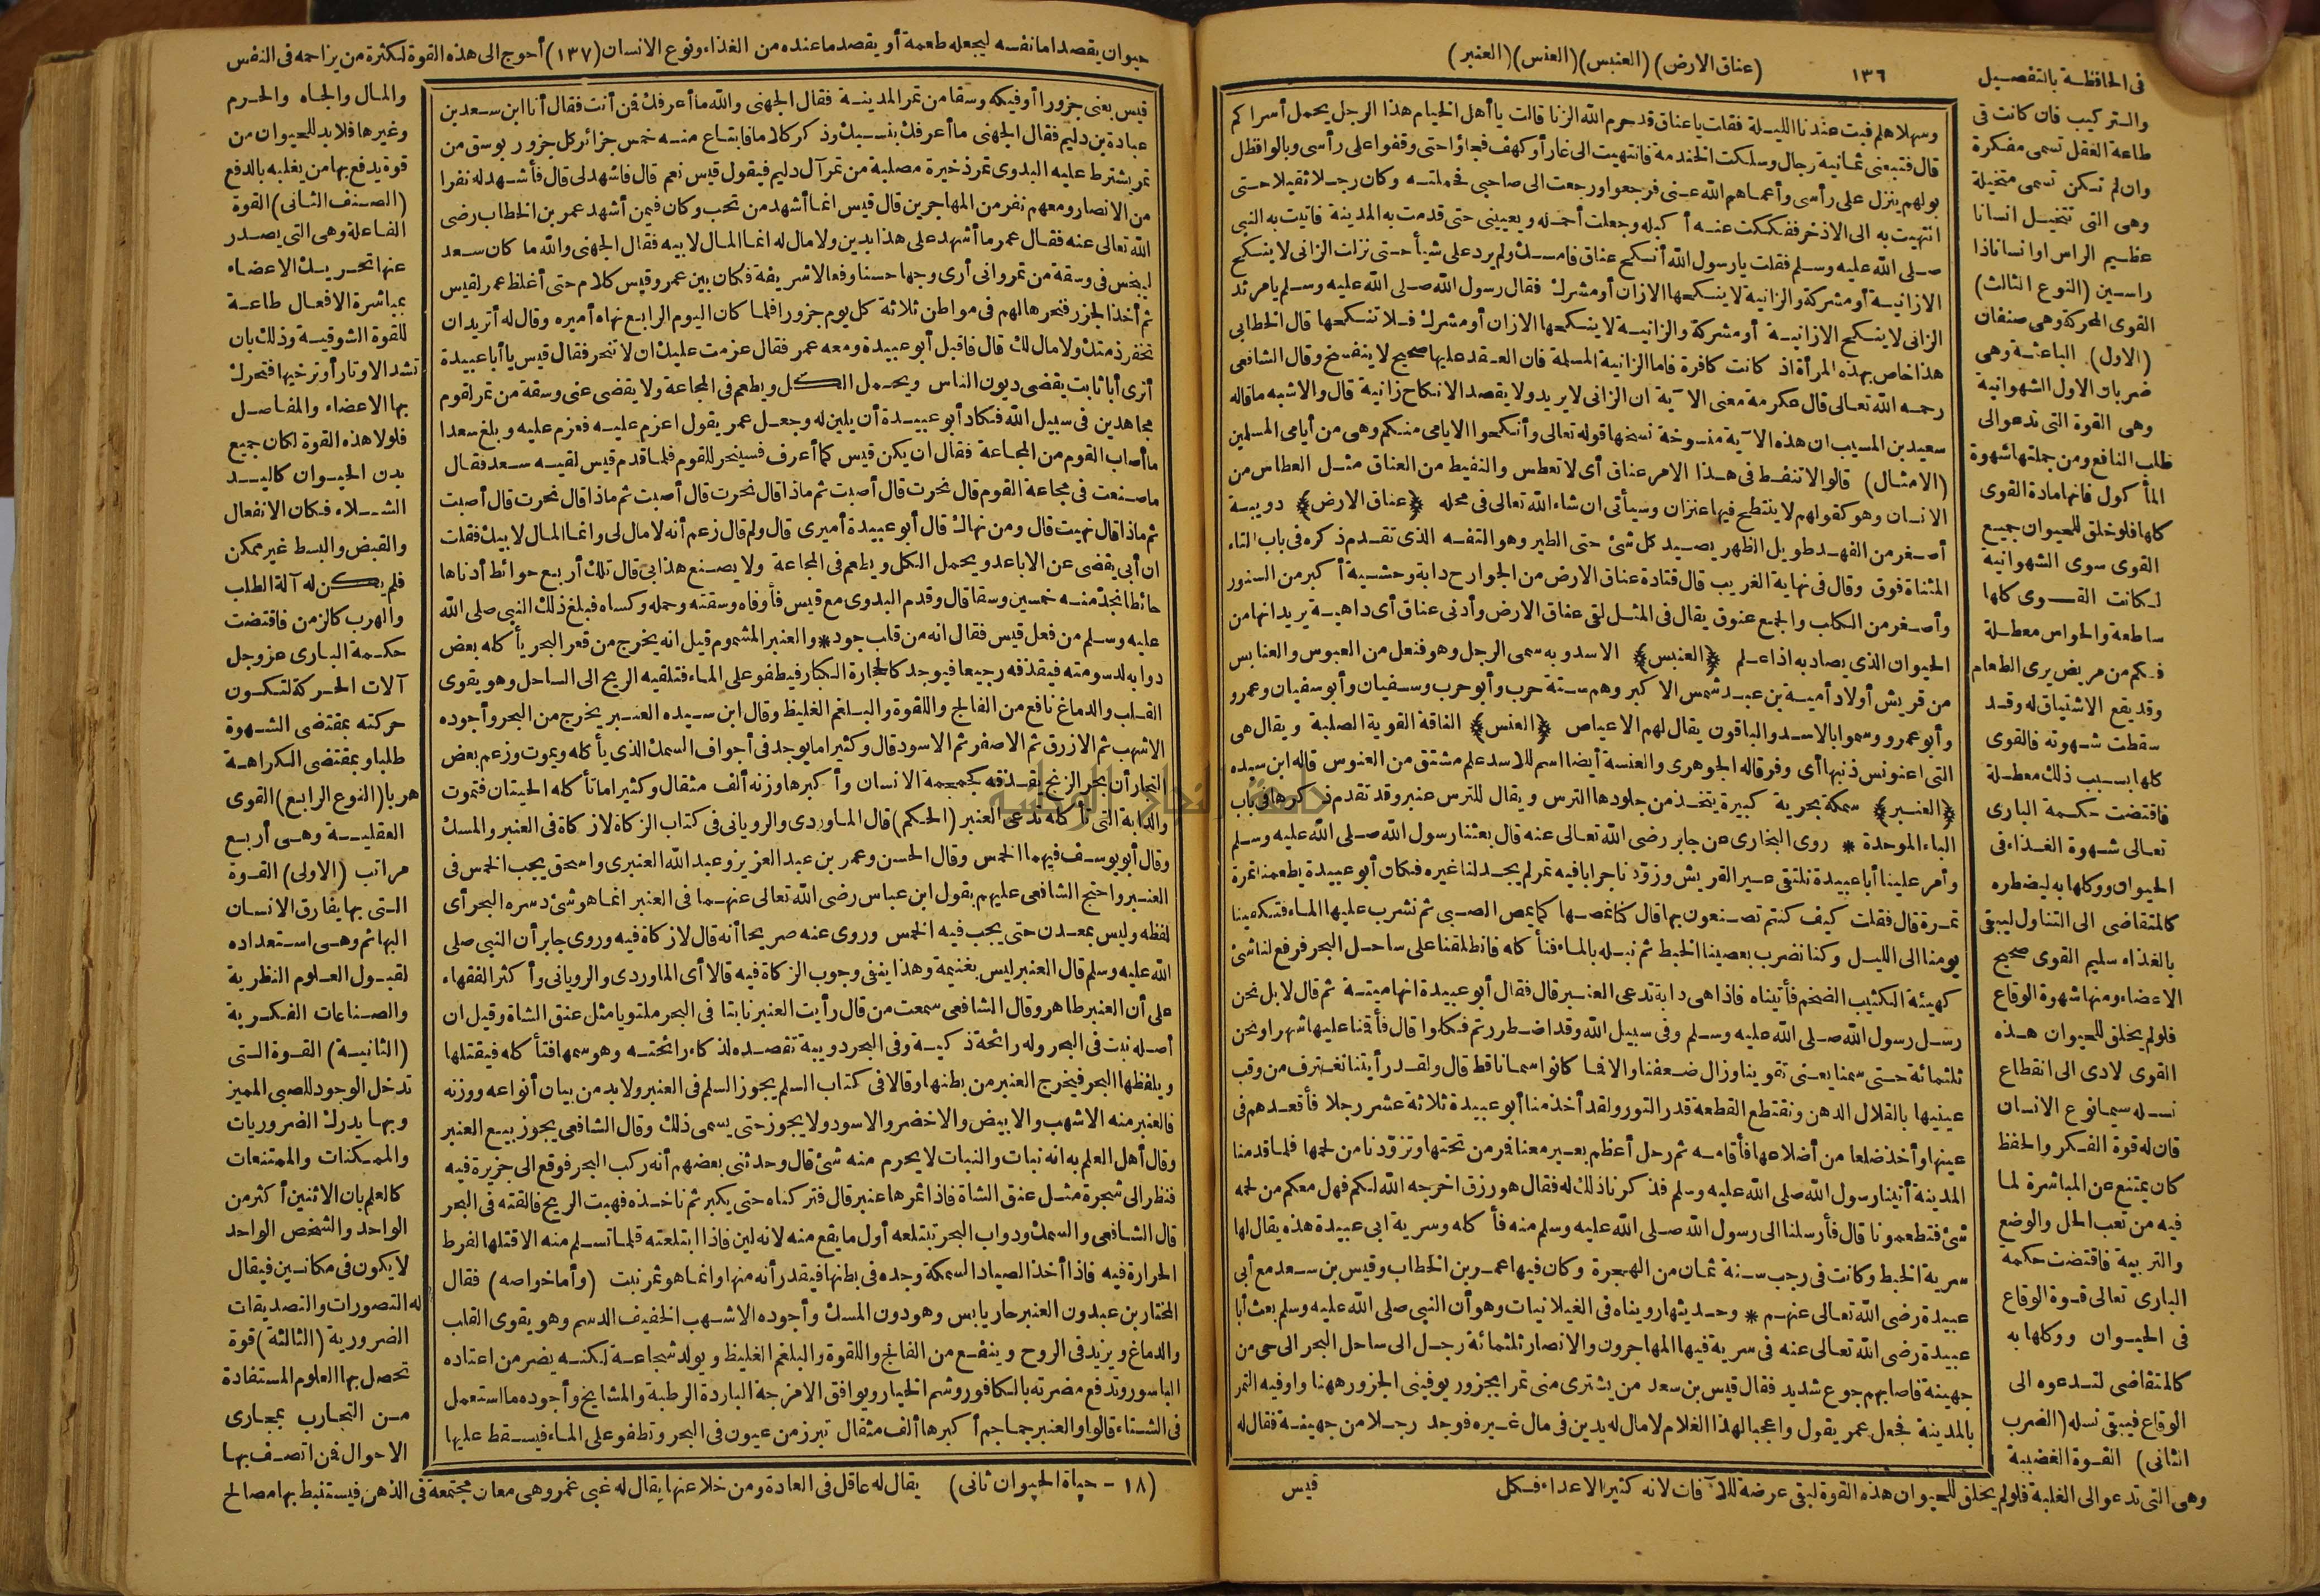 ١٣٦
(عناق الارض) (العنبس) (العنس) (العنبر)
وسهلا هلم فبت عندنا الليلة فقلت ياعناق قد حرم الله الزنا قالت يا أهل الخيام هذا الرجل يحمل أسراكم
قال فتبعني ثمانية رجال وسلكت الخندمة فانتهيت الى غار أوكهف فجاؤا حتى وقفوا على رأسي وبالوا فظل
بولهم ينزل على رأسي وأعماهم الله عني فرجعوا ورجعت الى صاحبي فحملته وكان رجلا ثقيلا حتى
انتهيت به الى الاذخر ففككت عنه أكبله وجعلت أحمله ويعييني حتى قدمت به المدينة فاتيت به النبي
صلى الله عليه وسلم فقلت يارسول الله أنكح عناق فامسك ولم يرد على شيأ حتى نزلت الزاني لا ينكح
الا زانية أو مشركة والزانية لا ينكحها الا زان أو مشرك فقال رسول الله صلى الله عليه وسلم يامرثد
الزاني لا ينكح الا زانية أو مشركة والزانية لا ينكحها الا زان أو مشرك فلا تنكحها قال الخطابي
هذا خاص بهذه المرأة اذ كانت كافرة فاما الزانية المسلمة فان العقد عليها صحيح لا ينفسخ وقال الشافعي
رحمه الله تعالى قال عكرمة معنى الآية ان الزاني لا يريد ولا يقصد الا نكاح زانية قال والاشبه ما قاله
سعيد بن المسيب ان هذه الآية منسوخة نسخها قوله تعالى وأنكحوا الايامى منكم وهي من أيامى المسلمين
(الامثال) قالوا لا تنفط في هذا الامر عناق أي لا تعطس والنفيط من العناق مثل العطاس من
الانسان وهو كقولهم لا ينتطح فيها عنزان وسيأتي ان شاء الله تعالى في محله ﴿عناق الارض﴾ دويبة
أصغر من الفهد طويل الظهر يصيد كل شئ حتى الطير وهو التفه الذي تقدم ذكره في باب التاء
المثناة فوق وقال في نهاية الغريب قال قتادة عناق الارض من الجوارح دابة وحشية أكبر من السنور
وأصغر من الكلب والجمع عنوق يقال في المثل لقى عناق الارض وأذنى عناق أي داهية يريد انها من
الحيوان الذي يصاد به اذا علم ﴿العنبس﴾ الاسد وبه سمى الرجل وهو فنعل من العبوس والعنابس
من قريش أولاد أمية بن عبد شمس الاكبر وهم ستة حرب وأبوحرب وسفيان وأبوسفيان وعمرو
وأبوعمرو وسموا بالاسد والباقون يقال لهم الاعياص ﴿العنس﴾ الناقة القوية الصلبة ويقال هي
التي اعنونس ذنبها أي وفر قاله الجوهري والعنسة أيضا اسم للاسد علم مشتق من العنوس قاله ابن سيده
﴿العنبر﴾ سمكة بحرية كبيرة يتخذ من جلودها الترس ويقال للترس عنبر وقد تقدم ذكرها في باب
الباء الموحدة * روى البخاري عن جابر رضي الله تعالى عنه قال بعثنا رسول الله صلى الله عليه وسلم
وأمر علينا أبا عبيدة نلتقى عير القريش وزودنا جرابا فيه تمر لم يجد لنا غيره فكان أبوعبيدة يطعمنا تمرة
تمرة قال فقلت كيف كنتم تصنعون بها قال كنا نمصها كما يمص الصبي ثم نشرب عليها الماء فتكفينا
يومنا الى الليل وكنا نضرب بعصينا الخبط ثم نبله بالماء فنأكله فانطلقنا على ساحل البحر فرفع لنا شئ
كهيئة الكثيب الضخم فأتيناه فاذا هي دابة تدعى العنبر قال فقال أبوعبيدة انها ميتة ثم قال لا بل نحن
رسل رسول الله صلى الله عليه وسلم وفي سبيل الله وقد اضطررتم فكلوا قال فأقمنا عليها شهرا ونحن
ثلثمائة حتى سمنا يعنى تقوينا وزال ضعفنا والا فما كانوا سمانا قط قال ولقد رأيتنا نغترف من وقب
عينيها بالقلال الدهن ونقتطع القطعة قدر الثور ولقد أخذ منا أبوعبيدة ثلاثة عشر رجلا فأقعدهم في
عينها وأخذ ضلعا من أضلاعها فأقامه ثم رحل أعظم بعير معنا فمر من تحتها وتزودنا من لحمها فلما قدمنا
المدينة أتينا رسول الله صلى الله عليه وسلم فذكرنا ذلك له فقال هو رزق اخرجه الله لكم فهل معكم من لحمه
شئ فتطعمونا قال فأرسلنا الى رسول الله صلى الله عليه وسلم منه فأكله وسرية ابي عبيدة هذه يقال لها
سرية الخبط وكانت في رجب سنة ثمان من الهجرة وكان فيها عمر بن الخطاب وقيس بن سعد مع أبي
عبيدة رضي الله تعالى عنهم * وحديثها رويناه في الغيلانيات وهو أن النبي صلى الله عليه وسلم بعث أبا
عبيدة رضي الله تعالى عنه في سرية فيها المهاجرون والانصار ثلثمائة رجل الى ساحل البحر الى حي من
جهينة فاصابهم جوع شديد فقال قيس بن سعد من يشترى منى تمرا بجزور يوفينى الجزور ههنا واوفيه التمر
بالمدينة فجعل عمر يقول واعجبا لهذا الغلام لا مال له يدين في مال غيره فوجد رجلا من جهينة فقال له
قيس
في الحافظة بالتفصيل
والتركيب فان كانت في
طاعة العقل تسمى مفكرة
وان لم تكن تسمى متخيلة
وهي التي تتخيل انسانا
عظيم الراس او انسانا ذا
راسين (النوع الثالث)
القوى المحركة وهي صنفان
(الاول) الباعثة وهي
ضربان الاول الشهوانية
وهي القوة التي تدعو الى
طلب النافع ومن جملتها شهوة
المأكول فانها مادة القوى
كلها فلو خلق للحيوان جميع
القوى سوى الشهوانية
لكانت القوى كلها
ساطعة والحواس معطلة
فكم من مريض يرى الطعام
وقد يقع الاشتياق له وقد
سقطت شهوته فالقوى
كلها بسبب ذلك معطلة
فاقتضت حكمة البارى
تعالى شهوة الغذاء في
الحيوان ووكلها به ليضطره
كالمتقاضى الى التناول ليبقى
بالغذاء سليم القوى صحيح
الاعضاء ومنها شهوة الوقاع
فلو لم يخلق للحيوان هذه
القوى لادى الى انقطاع
نسله سيما نوع الانسان
فان له قوة الفكر والحفظ
كان يمتنع عن المباشرة لما
فيه من تعب الحل والوضع
والتربية فاقتضت حكمة
البارى تعالى قوة الوقاع
في الحيوان ووكلها به
كالمتقاضى لتدعوه الى
الوقاع فيبقى نسله (الضرب
الثانى) القوة الغضبية
وهي التي تدعو الى الغلبة فلو لم يخلق للحيوان هذه القوة لبقى عرضة للآفات لانه كثير الاعداء فكل
حيوان يقصد اما نفسه ليجعله طعمة أو يقصد ما عنده من الغذاء ونوع الانسان (١٣٧) أحوج الى هذه القوة لكثرة من يزاحمه في النفس
قيس بعنى جزورا أوفيكه وسقا من تمر المدينة فقال الجهنى والله ما أعرفك فمن أنت فقال أنا ابن سعد بن
عبادة بن دليم فقال الجهنى ما أعرفك بنسبك وذكر كلاما فابتاع منه خمس جزائر كل جزور بوسق من
تمر يشترط عليه البدوى تمر ذخيرة مصلبة من تمر آل دليم فيقول قيس نعم قال فاشهد لى قال فأشهد له نفرا
من الانصار ومعهم نفر من المهاجرين قال قيس انما أشهد من تحب وكان فيمن أشهد عمر بن الخطاب رضى
الله تعالى عنه فقال عمر ما أشهد على هذا يدين ولا مال له انما المال لابيه فقال الجهنى والله ما كان سعد
ليخس في وسقة من تمر وانى أرى وجها حسنا وفعالا شريفة فكان بين عمر وقيس كلام حتى أغلظ عمر لقيس
ثم أخذ الجزر فنحرها لهم في مواطن ثلاثة كل يوم جزورا فلما كان اليوم الرابع نهاه أميره وقال له أتريد ان
تخفر ذمتك ولا مال لك قال فاقبل أبوعبيدة ومعه عمر فقال عزمت عليك ان لا تنحر فقال قيس يا أبا عبيدة
أترى أبا ثابت يقضى ديون الناس ويحمل الكل ويطعم في المجاعة ولا يقضى عنى وسقة من تمر لقوم
مجاهدين في سبيل الله فكاد أبوعبيدة أن يلين له وجعل عمر يقول اعزم عليه فعزم عليه وبلغ سعدا
ما أصاب القوم من المجاعة فقال ان يكن قيس كما أعرف فسينحر للقوم فلما قدم قيس لقيه سعد فقال
ما صنعت في مجاعة القوم قال نحرت قال أصبت ثم ماذا قال نحرت قال أصبت ثم ماذا قال نحرت قال أصبت
ثم ماذا قال نهيت قال ومن نهاك قال أبوعبيدة أميرى قال ولم قال زعم أنه لا مال لى وانما المال لابيك فقلت
ان أبى يقضى عن الاباعد ويحمل الكل ويطعم في المجاعة ولا يصنع هذا بى قال تلك أربع حوائط أدناها
حائط انجذ منه خمسين وسقا قال وقدم البدوى مع قيس فأوفاه وسقته وحمله وكساه فبلغ ذلك النبي صلى الله
عليه وسلم من فعل قيس فقال انه من قلب جود * والعنبر المشموم قيل انه يخرج من قعر البحر يأكله بعض
دوابه لدسومته فيقذفه رجيعا فيوجد كالحجارة الكبار فيطفو على الماء فتلقيه الريح الى الساحل وهو يقوى
القلب والدماغ نافع من الفالج واللقوة والبلغم الغليظ وقال ابن سيده العنبر يخرج من البحر وأجوده
الاشهب ثم الازرق ثم الاصفر ثم الاسود قال وكثيرا ما يوجد في أجواف السمك الذى يأكله ويموت وزعم بعض
التجار أن بحر الزنج يقذفه كجمجمة الانسان وأكبرها وزنه ألف مثقال وكثيرا ما تأكله الحيتان فتموت
والدابة التى تأكله تدعى العنبر (الحكم) قال الماوردى والرويانى في كتاب الزكاة لا زكاة في العنبر والمسك
وقال أبويوسف فيهما الخمس وقال الحسن وعمر بن عبد العزيز وعبد الله العنبرى واسحق يجب الخمس في
العنبر واحتج الشافعى عليهم بقول ابن عباس رضي الله تعالى عنهما في العنبر انما هو شئ دسره البحر أى
لفظه وليس بمعدن حتى يجب فيه الخمس وروى عنه صريحا أنه قال لا زكاة فيه وروى جابر أن النبي صلى
الله عليه وسلم قال العنبر ليس بغنيمة وهذا ينفى وجوب الزكاة فيه قالا أى الماوردى والرويانى وأكثر الفقهاء
على أن العنبر طاهر وقال الشافعى سمعت من قال رأيت العنبر نابتا في البحر ملتويا مثل عنق الشاة وقيل ان
أصله نبت في البحر وله رائحة ذكية وفي البحر دويبة تقصده لذكاء رائحته وهو سمها فتأكله فيقتلها
ويلفظها البحر فيخرج العنبر من بطنها وقالا في كتاب السلم يجوز السلم في العنبر ولا بد من بيان أنواعه ووزنه
فالعنبر منه الاشهب والابيض والاخضر والاسود ولا يجوز حتى يسمى ذلك وقال الشافعى يجوز بيع العنبر
وقال أهل العلم به انه نبات والنبات لا يحرم منه شئ قال وحدثنى بعضهم أنه ركب البحر فوقع الى جزيرة فيه
فنظر الى شجرة مثل عنق الشاة فاذا ثمرها عنبر قال فتركناه حتى يكبر ثم ناخذه فهبت الريح فالقته في البحر
قال الشافعى والسمك ودواب البحر تبتلعه أول ما يقع منه لانه لين فاذا ابتلعته قلما تسلم منه الا قتلها لفرط
الحرارة فيه فاذا أخذ الصياد السمكة وجده في بطنها فيقدر أنه منها وانما هو ثمر نبت (وأما خواصه) فقال
المختار بن عبدون العنبر حار يابس وهو دون المسك وأجوده الاشهب الخفيف الدسم وهو يقوى القلب
والدماغ ويزيد في الروح وينفع من الفالج واللقوة والبلغم الغليظ ويولد شجاعة لكنه يضر من اعتاده
الباسور وتدفع مضرته بالكافور وشم الخيار ويوافق الامزجة الباردة الرطبة والمشايخ وأجوده ما استعمل
في الشتاء قالوا والعنبر جماجم أكبرها ألف مثقال تبرز من عيون في البحر وتطفو على الماء فيسقط عليها
والمال والجاه والحرم
وغيرها فلا بد للحيوان من
قوة يدفع بها من يغلبه بالدفع
(الصنف الثانى) القوة
الفاعلة وهى التى يصدر
عنها تحريك الاعضاء
بمباشرة الافعال طاعة
للقوة الشوقية وذلك بان
تشد الاوتار أو ترخيها فتحرك
بها الاعضاء والمفاصل
فلولا هذه القوة لكان جميع
بدن الحيوان كاليد
الشلاء فكان الانفعال
والقبض والبسط غير ممكن
فلم يكن له آلة الطلب
والهرب كالزمن فاقتضت
حكمة البارى عز وجل
آلات الحركة لتكون
حركته بمقتضى الشهوة
طلبا وبمقتضى الكراهة
هربا (النوع الرابع) القوى
العقلية وهى أربع
مراتب (الاولى) القوة
التى بها يفارق الانسان
البهائم وهى استعداده
لقبول العلوم النظرية
والصناعات الفكرية
(الثانية) القوة التى
تدخل الوجود للصبى المميز
وبها يدرك الضروريات
والممكنات والممتنعات
كالعلم بان الاثنين أكثر من
الواحد والشخص الواحد
لا يكون في مكانين فيقال
له التصورات والتصديقات
الضرورية (الثالثة) قوة
تحصل بها العلوم المستفادة
من التجارب بمجارى
الاحوال فمن اتصف بها
(١٨ - حياة الحيوان ثانى)
يقال له عاقل في العادة ومن خلا عنها يقال له غبى غمر وهى معان مجتمعة في الذهن فيستنبط بها مصالح